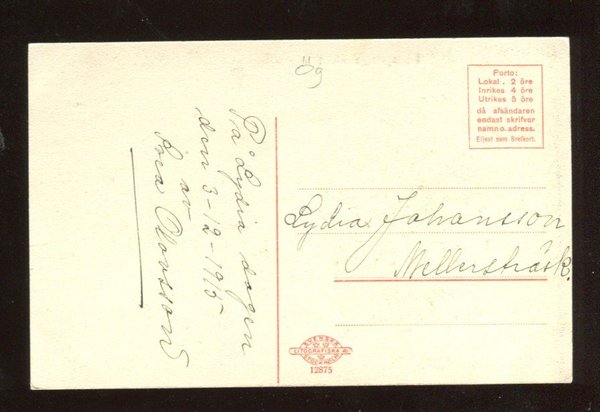 Ög
På Lydia dagen
den 3-12-1915
av
Olovsson
Porto:
Lokal . 2 öre
Inrikes 4 öre
Utrikes 5 öre
då afsändaren
endast skrifver
namn o. adress.
Eljest som Brefkort.
Lydia Johansson
Mellersträsk.
SVENSKA
LITOGRAFISKA AB
STOCKHOLM
12875